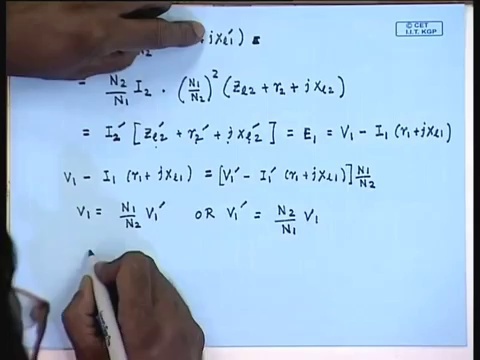 © CET
I.I.T. KGP
N2 jxl1′) =
= N2/N1 I2 . (N1/N2)² (Zl2 + r2 + jxl2)
= I2′ [Zl2′ + r2′ + jxl2′] = E1 = V1 − I1 (r1+jxl1)
V1 − I1 (r1+jxl1) = [V1′ − I1′ (r1+jxl1)] N1/N2
V1 = N1/N2 V1′ OR V1′ = N2/N1 V1